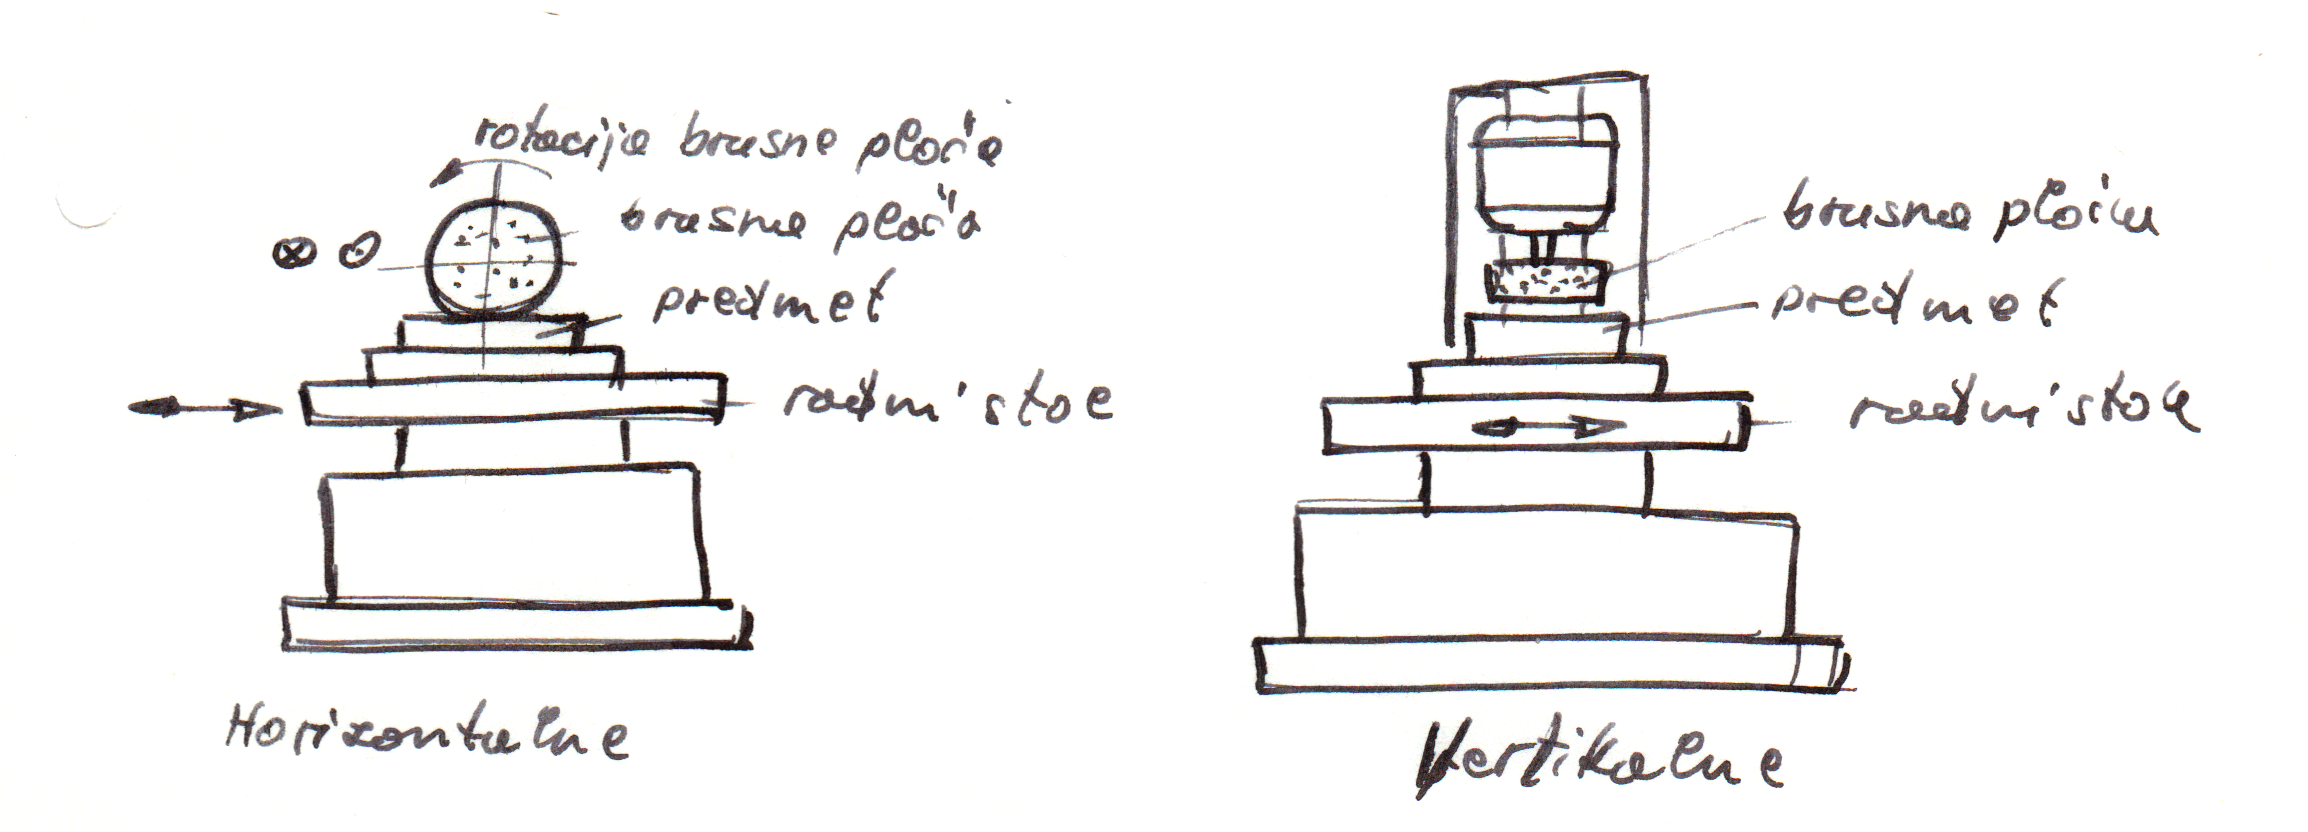 rotacija brusne ploče
brusna ploča
predmet
radni stol
Horizontalne
brusna ploča
predmet
radni stol
Vertikalne